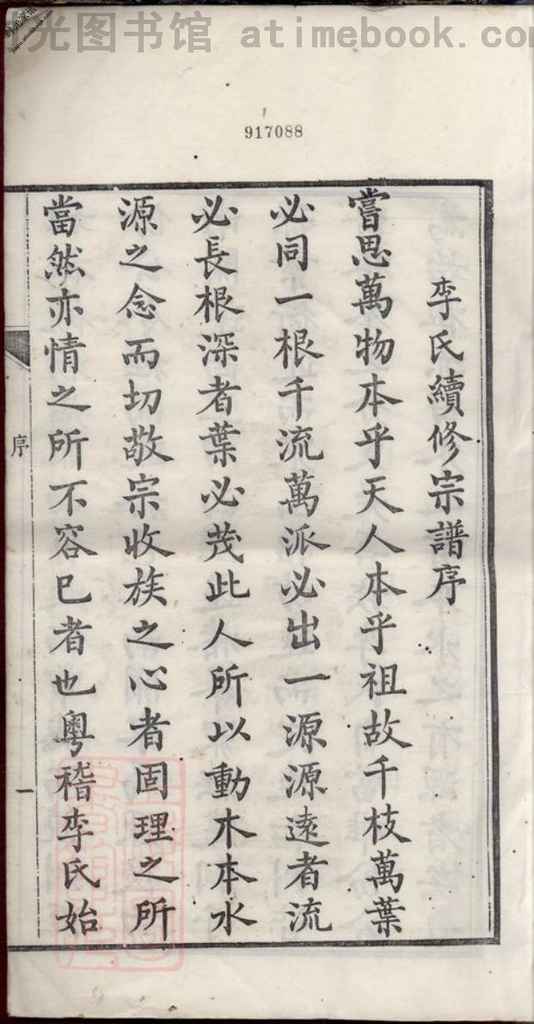 光图书馆 atimebook.co
917088
李氏續修宗譜序
嘗思萬物本乎天人本乎祖故千枝萬葉
必同一根千流萬派必出一源源遠者流
必長根深者葉必茂此人所以動木本水
源之念而切敬宗收族之心者固理之所
當然亦情之所不容已者也粵稽李氏始
序
一